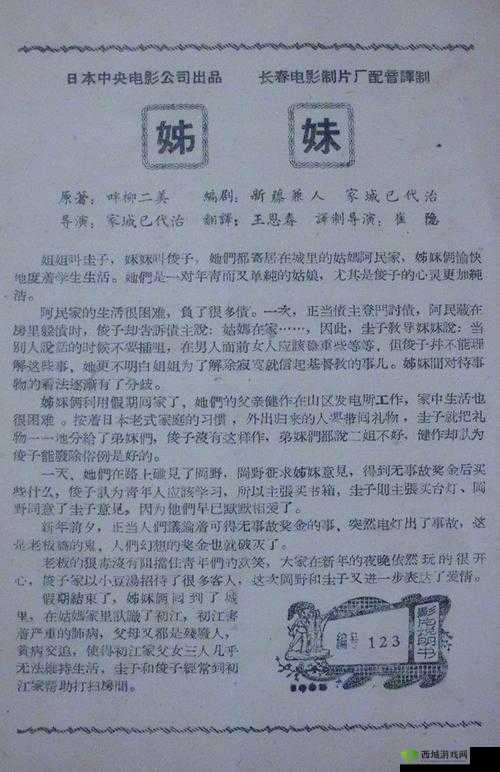 日本中央电影公司出品　长春电影制片厂配音譯制
姊　妹
原著：畔柳二美　编剧：新藤兼人　家城巳代治
导演：家城巳代治　翻譯：王思春　譯制导演：崔　隐
姐姐叫圭子，妹妹叫俊子，她們都寄居在城里的姑媽阿民家，姊妹倆愉快
地度着学生生活。她們是一对年青而又单純的姑娘，尤其是俊子的心灵更加純
洁。
阿民家的生活很困难，負了很多債。一次，正当債主登門討債，阿民藏在
房里躱債时，俊子却告訴債主說：姑媽在家……，因此，圭子教导妹妹說：当
别人說話的时候不要插咀，在男人面前女人应該稳重些等等，但俊子并不能理
解这些事，她更不明白姐姐为了解除寂寞就信起基督教的事儿。姊妹間对待事
物的看法逐漸有了分歧。
姊妹俩利用假期回家了，她們的父亲健作在山区发电所工作，家中生活也
很困难。按着日本老式家庭的习惯，外出归来的人要带回礼物，圭子就把礼
物一一地分給了弟妹們，俊子沒有这样作，弟妹們都說二姐不好，健作却认为
俊子能廢除俗例是好的。
一天，她們在路上碰見了岡野，岡野征求姊妹意見，得到无事故奖金后买
些什么，俊子认为青年人应該学习，所以主張买书箱，圭子則主張买台灯、岡
野同意了圭子意見，因为他們早已默默相爱了。
新年前夕，正当人們議論着可得无事故奖金的事，突然电灯出了事故，这
是老板搞的鬼、人們幻想的奖金也就破灭了。
老板的狠毒沒有阻擋住青年們的欢笑，大家在新年的夜晚依然玩的很开
心，俊子家以小豆湯招待了很多客人，这次岡野和圭子又进一步表达了爱情。
假期結束了，姊妹俩回到了城
里，在姑媽家里認識了初江，初江害
着严重的肺病，父母又都是残癈人，
貧病交迫，使得初江父女三人几乎
无法維持生活，圭子和俊子經常到初
江家帮助打扫房間。
影片說明书
編号 123
西域游戏网